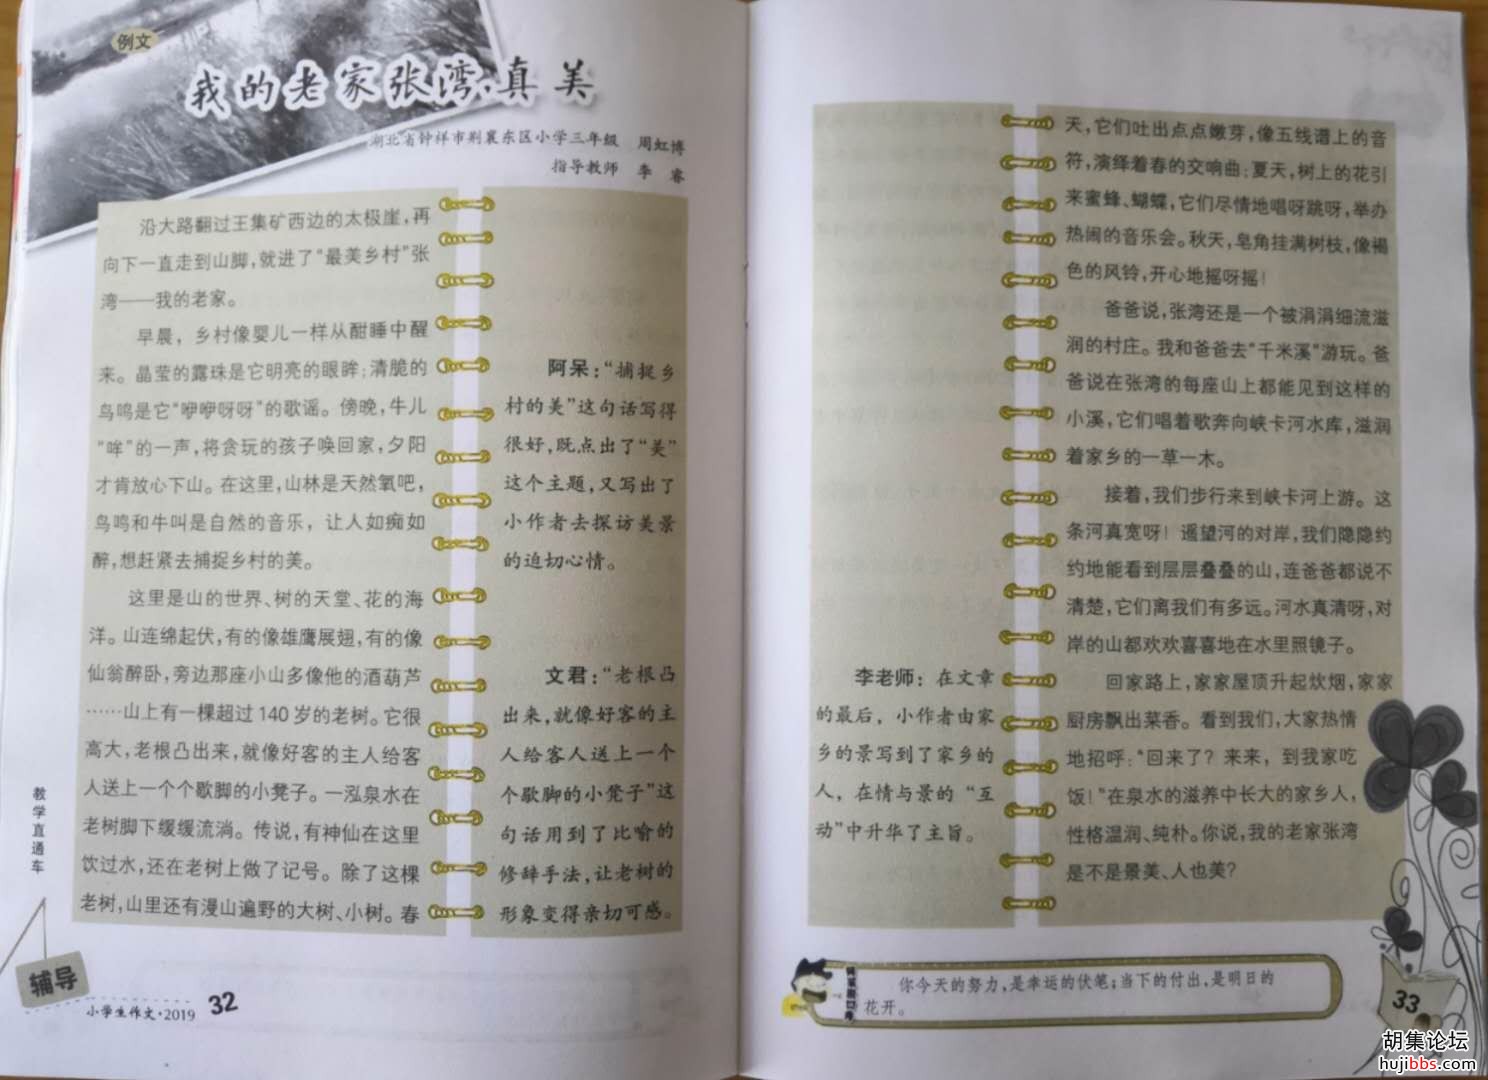 例文
我的老家张湾·真美
湖北省钟祥市荆襄东区小学三年级 周虹博
指导教师 李睿
沿大路翻过王集矿西边的太极崖,再
向下一直走到山脚,就进了“最美乡村”张
湾——我的老家。
早晨，乡村像婴儿一样从酣睡中醒
来。晶莹的露珠是它明亮的眼眸;清脆的
鸟鸣是它“咿咿呀呀”的歌谣。傍晚,牛儿
“哞”的一声,将贪玩的孩子唤回家,夕阳
才肯放心下山。在这里,山林是天然氧吧,
鸟鸣和牛叫是自然的音乐，让人如痴如
醉,想赶紧去捕捉乡村的美。
这里是山的世界、树的天堂、花的海
洋。山连绵起伏,有的像雄鹰展翅,有的像
仙翁醉卧,旁边那座小山多像他的酒葫芦
……山上有一棵超过140岁的老树。它很
高大,老根凸出来,就像好客的主人给客
人送上一个个歇脚的小凳子。一泓泉水在
老树脚下缓缓流淌。传说,有神仙在这里
饮过水,还在老树上做了记号。除了这棵
老树,山里还有漫山遍野的大树、小树。春
阿呆：“捕捉乡
村的美”这句话写得
很好,既点出了“美”
这个主题,又写出了
小作者去探访美景
的迫切心情。
文君：“老根凸
出来,就像好客的主
人给客人送上一个
个歇脚的小凳子”这
句话用到了比喻的
修辞手法,让老树的
形象变得亲切可感。
教学直通车
辅导
小学生作文·2019 32
天,它们吐出点点嫩芽,像五线谱上的音
符,演绎着春的交响曲;夏天,树上的花引
来蜜蜂、蝴蝶,它们尽情地唱呀跳呀,举办
热闹的音乐会。秋天,皂角挂满树枝,像褐
色的风铃,开心地摇呀摇!
爸爸说,张湾还是一个被涓涓细流滋
润的村庄。我和爸爸去“千米溪”游玩。爸
爸说在张湾的每座山上都能见到这样的
小溪,它们唱着歌奔向峡卡河水库,滋润
着家乡的一草一木。
接着,我们步行来到峡卡河上游。这
条河真宽呀! 遥望河的对岸,我们隐隐约
约地能看到层层叠叠的山,连爸爸都说不
清楚,它们离我们有多远。河水真清呀,对
岸的山都欢欢喜喜地在水里照镜子。
回家路上,家家屋顶升起炊烟,家家
厨房飘出菜香。看到我们,大家热情
地招呼:“回来了? 来来，到我家吃
饭!”在泉水的滋养中长大的家乡人,
性格温润、纯朴。你说,我的老家张湾
是不是景美、人也美?
李老师：在文章
的最后，小作者由家
乡的景写到了家乡的
人，在情与景的“互
动”中升华了主旨。
你今天的努力,是幸运的伏笔;当下的付出,是明日的
花开。
33
胡集论坛
hujibbs.com